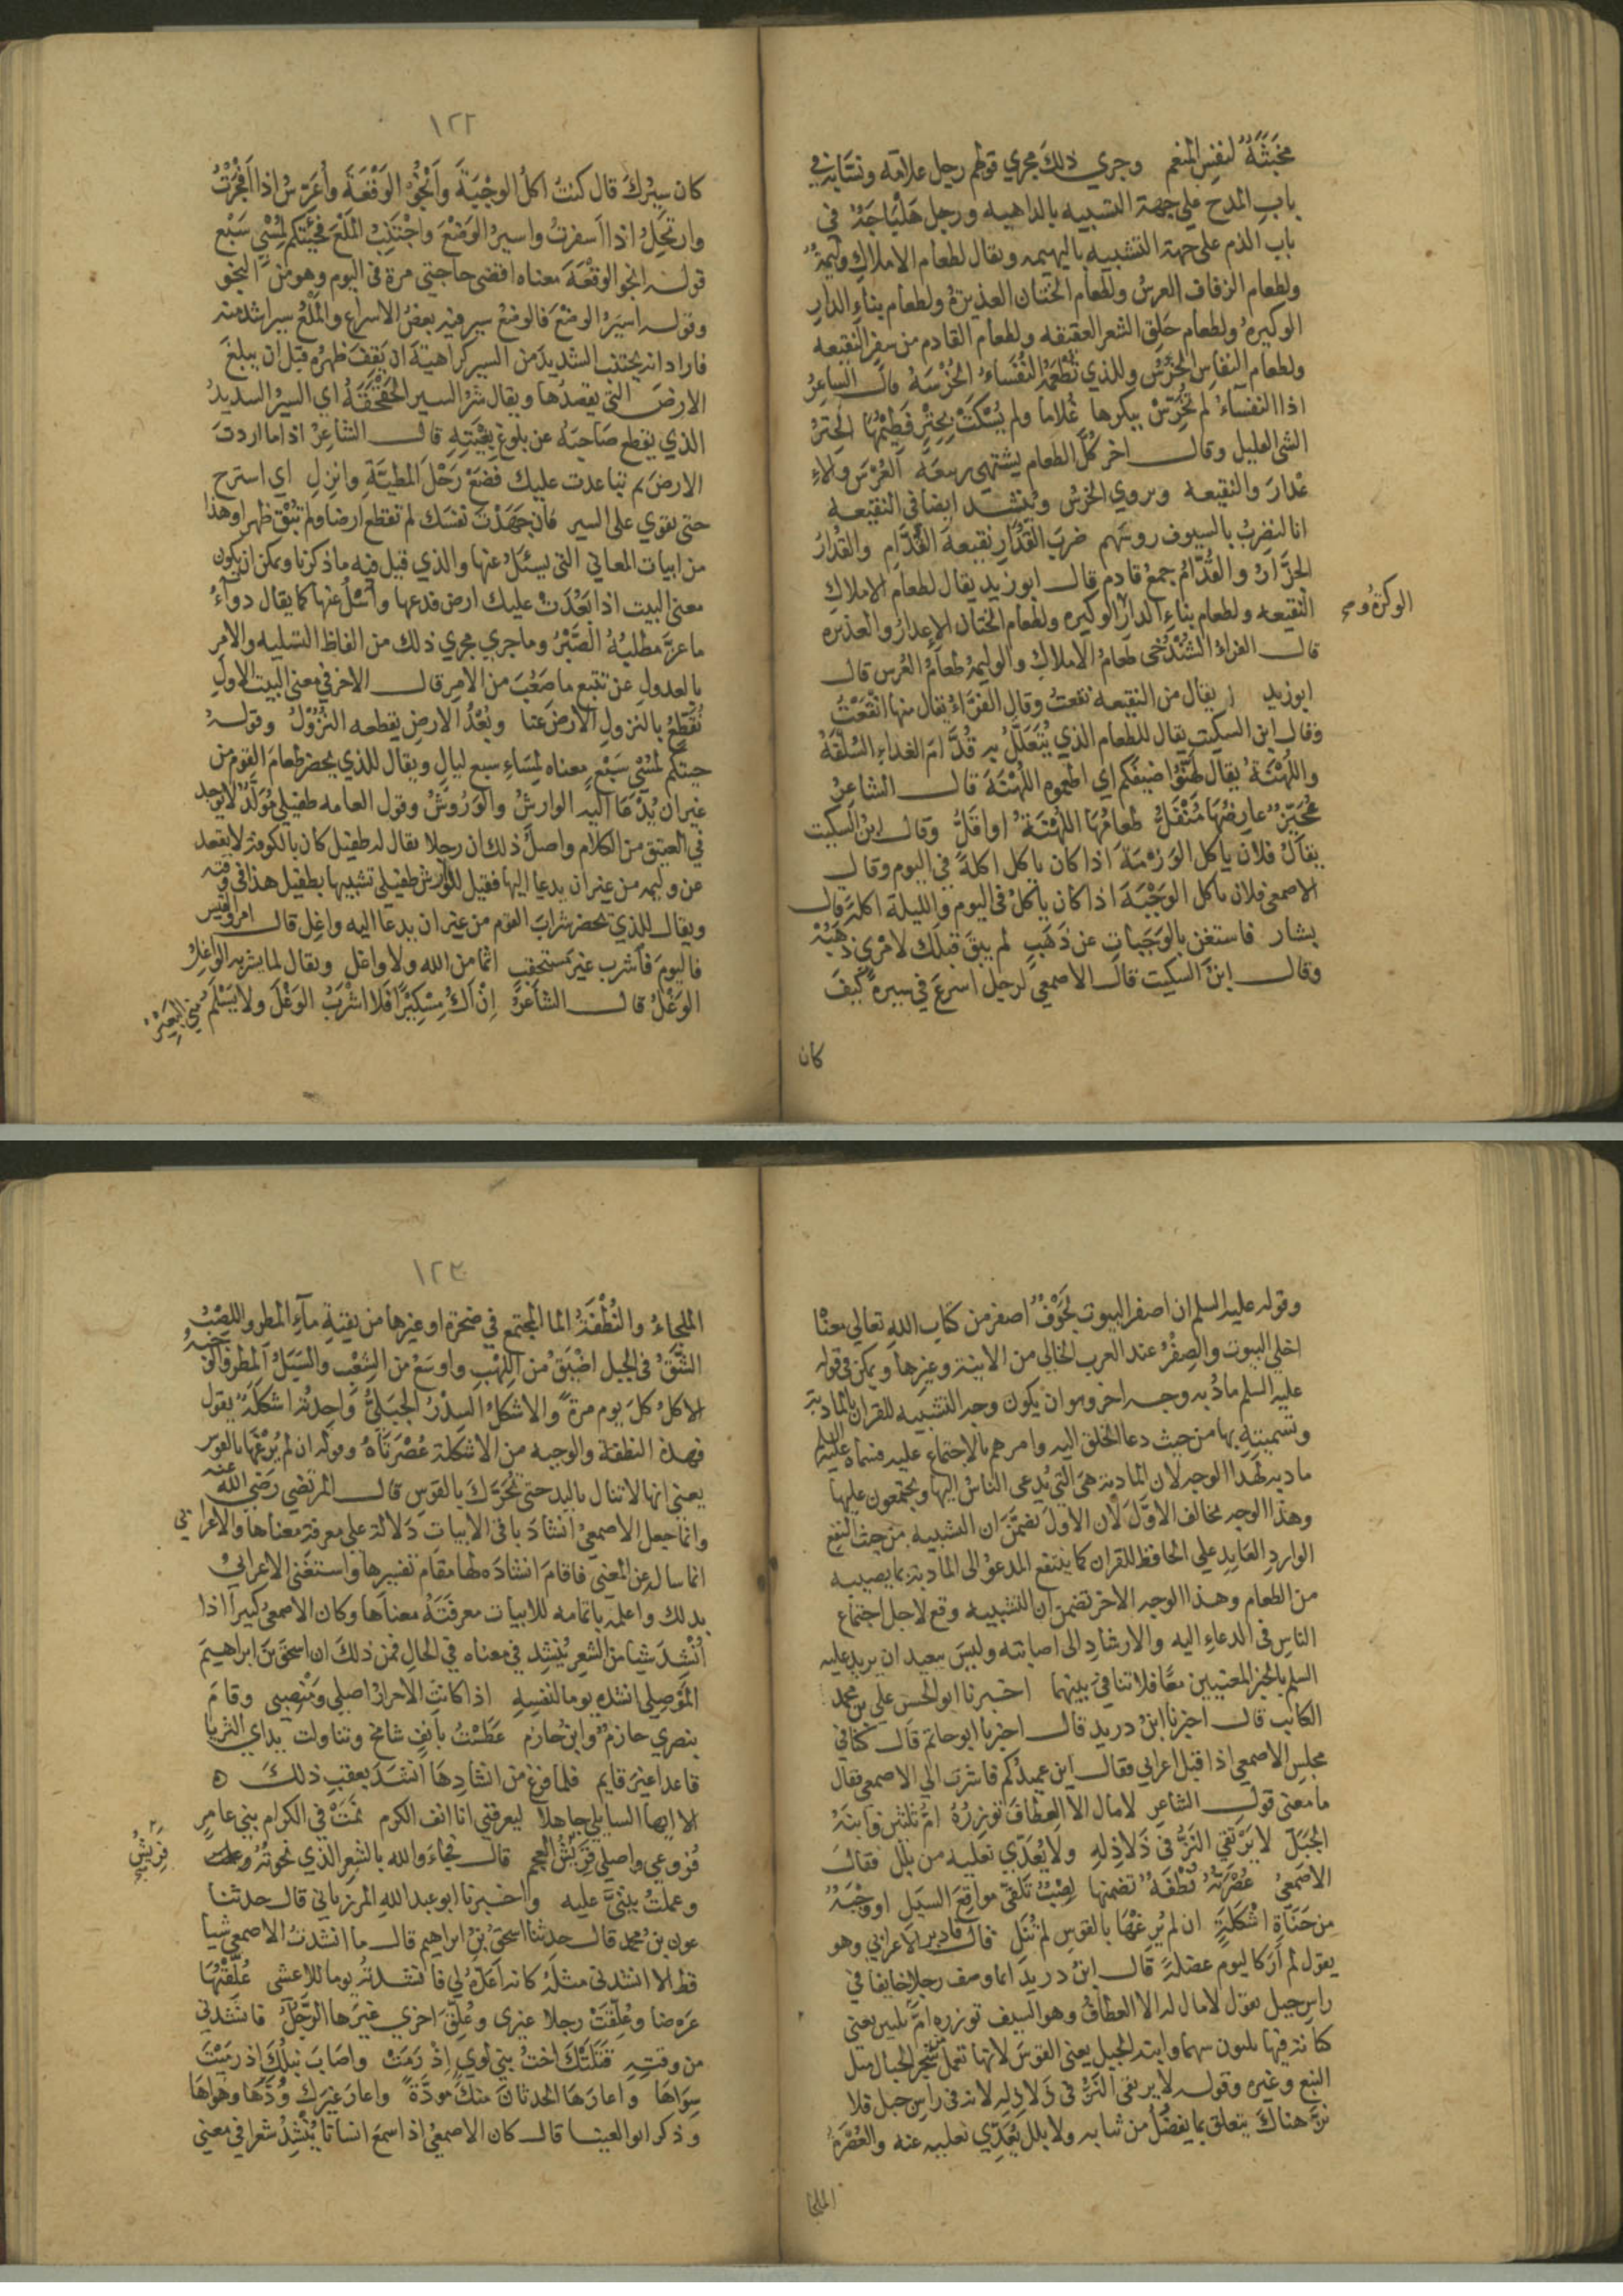 مخبثة لنفس المنعم وجري ذلك مجري قولهم رجل علامة ونسابة في
باب المدح علي جهة التشبيه بالداهيه ورجل هلباجة في
باب الذم على جهة التشبيه بالبهيمه ويقال لطعام الاملاك وليمة
ولطعام الزفاف العرس ولطعام الختان العذيرة ولطعام بناء الدار
الوكيرة ولطعام حلق الشعر العقيقه ولطعام القادم من سفر النقيعه
ولطعام النفاس الخرس وللذي تطعمه النفساء الخرسة قال الشاعر
اذا النفساء لم تخرس ببكرها غلاما ولم يسكت بحتر فطيمها الحتر
الشي القليل وقال اخر كل الطعام يشتهي ربيعه العرس والاء
عذار والنقيعه ويروي الخرس وينشد ايضا في النقيعه
انا لنضرب بالسيوف روسهم ضرب القدار نقيعة القدام والقدار
الجزار والقدام جمع قادم قال ابو زيد يقال لطعام الاملاك
النقيعه ولطعام بناء الدار الوكيره ولطعام الختان الاعذار والعذيره
الوكرة وصح
قال الفراء الشندخى طعام الاملاك والوليمة طعام العرس قال
ابو زيد يقال من النقيعه نقعت وقال الفراء يقال منها انقعت
وقال ابن السكيت يقال للطعام الذي يتعلل به قدام الغداء السلفة
واللهنة يقال لهنوا ضيفكم اي اطعموه اللهنة قال الشاعر
عجيز عارضها منفل طعامها اللهنة او اقل وقال ابن السكيت
يقال فلان ياكل الوزمة اذا كان ياكل اكلة في اليوم وقال
الاصمعي فلان ياكل الوجبة اذا كان ياكل في اليوم والليلة اكلة قال
بشار فاستغن بالوجبات عن ذهب لم يبق قبلك لامري ذهبه
وقال ابن السكيت قال الاصمعي لرجل اسرع في سيره كيف
كان
١٢٢
كان سيرك قال كنت اكل الوجبة وانجو الوقعة واعرس اذا افجرت
وارتحل اذا اسفرت واسير الوضع واجتنب الملع فجئتكم لمسي سبع
قوله انجو الوقعة معناه اقضي حاجتي مرة في اليوم وهو من النجو
وقوله اسير الوضع فالوضع سير فيه بعض الاسراع والملع سير اشد منه
فاراد انه يجتنب الشديد من السير كراهية ان يقف ظهره قبل ان يبلغ
الارض التي يقصدها ويقال شر السير الحقحقة اي السير الشديد
الذي يقطع صاحبه عن بلوغ بغيته قال الشاعر اذا ما اردت
الارض ثم تباعدت عليك فضع رحل المطية وانزل اي استرح
حتي تقوي على السير فان جهدت نفسك لم تقطع ارضا ولم تبق ظهرا وهذا
من ابيات المعاني التي يسئل عنها والذي قيل فيه ما ذكرنا ويمكن ان يكون
معنى البيت اذا بعدت عليك ارض فدعها واسل عنها كما يقال دواء
ما عز مطلبه الصبر وما جري مجري ذلك من الفاظ التسليه والامر
بالعدول عن تتبع ما صعب من الامر قال الاخر في معنى البيت الاول
نقطع بالنزول الارض عنا وبعد الارض يقطعه النزول وقوله
جيتكم لمسي سبع معناه لمساء سبع ليال ويقال للذي يحضر طعام القوم من
غير ان يدعا اليه الوارش والوروش وقول العامه طفيلي مولد لا يوجد
في العتيق من الكلام واصل ذلك ان رجلا يقال له طفيل كان بالكوفة لا يقعد
عن وليمه من غير ان يدعا اليها فقيل للوارش طفيلي تشبيها بطفيل هذا في وقته
ويقال للذي يحضر شراب القوم من غير ان يدعا اليه واغل قال امرؤ القيس
فاليوم فاشرب غير مستحقب اثما من الله ولا واغل ويقال لما يشربه الواغل
الوغل قال الشاعر ان اك مسكيرا فلا اشرب الوغل ولا يسلم مني البعير
وقوله عليه السلم ان اصفر البيوت لجوف اصفر من كتاب الله تعالي معناه
اخلي البيوت والصفر عند العرب الخالي من الابنية وغيرها ويمكن في قوله
عليه السلم مادبة وجه اخر وهو ان يكون وجه التشبيه للقران بالمادبة
وتسميته بها من حيث دعا الخلق اليه وامرهم بالاجتماع عليه فسماه عليه السلم
مادبة لهذا الوجه لان المادبة هي التي يدعى الناس اليها ويجتمعون عليها
وهذا الوجه يخالف الاول لان الاول تضمن ان التشبيه من حيث النفع
الوارد العايد علي الحافظ للقران كما ينتفع المدعو الى المادبة بما يصيبه
من الطعام وهذا الوجه الاخر تضمن ان التشبيه وقع لاجل اجتماع
الناس في الدعاء اليه والارشاد الى اصابته وليس ببعيد ان يريد عليه
السلم بالخبر المعنيين معا فلا تنافي بينهما اخبرنا ابو الحسن علي بن محمد
الكاتب قال اخبرنا ابن دريد قال اخبرنا ابو حاتم قال كنا في
مجلس الاصمعي اذ اقبل اعرابي فقال اين عميدكم فاشرت الي الاصمعي فقال
ما معنى قول الشاعر لا مال الا العطاف توزره ام ثلثين وابنة
الجبل لا يرتقي النز في ذلاذله ولا يعدي نعليه من بلل فقال
الاصمعي عصرته نطفة تضمنها لصب تلقى مواقع السبل او وجبة
من جناة اشكلة ان لم يرغها بالقوس لم تنل قال فادبر الاعرابي وهو
يقول لم أر كاليوم عضلة قال ابن دريد انما وصف رجلا خايفا في
راس جبل يقول لا مال له الا العطاف وهو السيف توزره ام ثلثين يعني
كنانة فيها ثلثون سهما وابنة الجبل يعني القوس لانها تعمل من شجر الجبال مثل
النبع وغيره وقوله لا يرتقي النز في ذلاذله لانه في راس جبل فلا
نز هناك يتعلق بما يفضل من ثيابه ولا بلل يعدي نعليه عنه والعصرة
الملجا
١٢٣
الملجاء والنطفة الما المجتمع في صخرة او غيرها من بقية ماء المطر واللصب
الشق في الجبل اضيق من اللهب واوسع من الشعب والسبل المطر والوجبة
الاكل كل يوم مرة والاشكل السدر الجبلي واحدته اشكلة يقول
فهذه النطفة والوجبه من الاشكلة عصرتاه وقوله ان لم يرغها بالقوس
يعني انها لا تنال باليد حتي تحرك بالقوس قال المرتضي رضي الله عنه
وانما جعل الاصمعي انشاد باقي الابيات دلالة على معرفة معناها والاعرابي
انما ساله عن المعني فاقام انشاده لها مقام تفسيرها واستغنى الاعرابي
بذلك واعلمه باتمامه للابيات معرفته معناها وكان الاصمعي كثيرا اذا
انشد شيا من الشعر ينشد في معناه في الحال فمن ذلك ان اسحق بن ابراهيم
الموصلي انشده يوما لنفسه اذا كانت الاحرار اصلي ومنصبي وقام
بنصري حازم وابن حازم عطست بانف شامخ وتناولت يداي الثريا
قاعدا غير قايم فلما فرغ من انشادها انشد بعقب ذلك ه
الا ايها السايلي جاهلا ليعرفني انا انف الكرم نمت في الكرام بني عامر
فروعي واصلي قريش العجم قال فجاء والله بالشعر الذي نحوته وعملت
قريش صح
وعملت بيتي عليه واخبرنا ابو عبد الله المرزباني قال حدثنا
عون بن محمد قال حدثنا اسحق بن ابراهيم قال ما انشدت الاصمعي شيا
قط الا انشدني مثله كانه اعده لي فانشدته يوما للاعشى علقتها
عرضا وعلقت رجلا غيرى وعلق اخري غيرها الرجل فانشدني
من وقته قتلتك اخت بني لوي اذ رمت واصاب نبلك اذ رميت
سواها واعارها الحدثان منك مودة واعار غيرك ودها وهواها
وذكر ابو العينا قال كان الاصمعي اذا سمع انسانا ينشد شعرا في معني